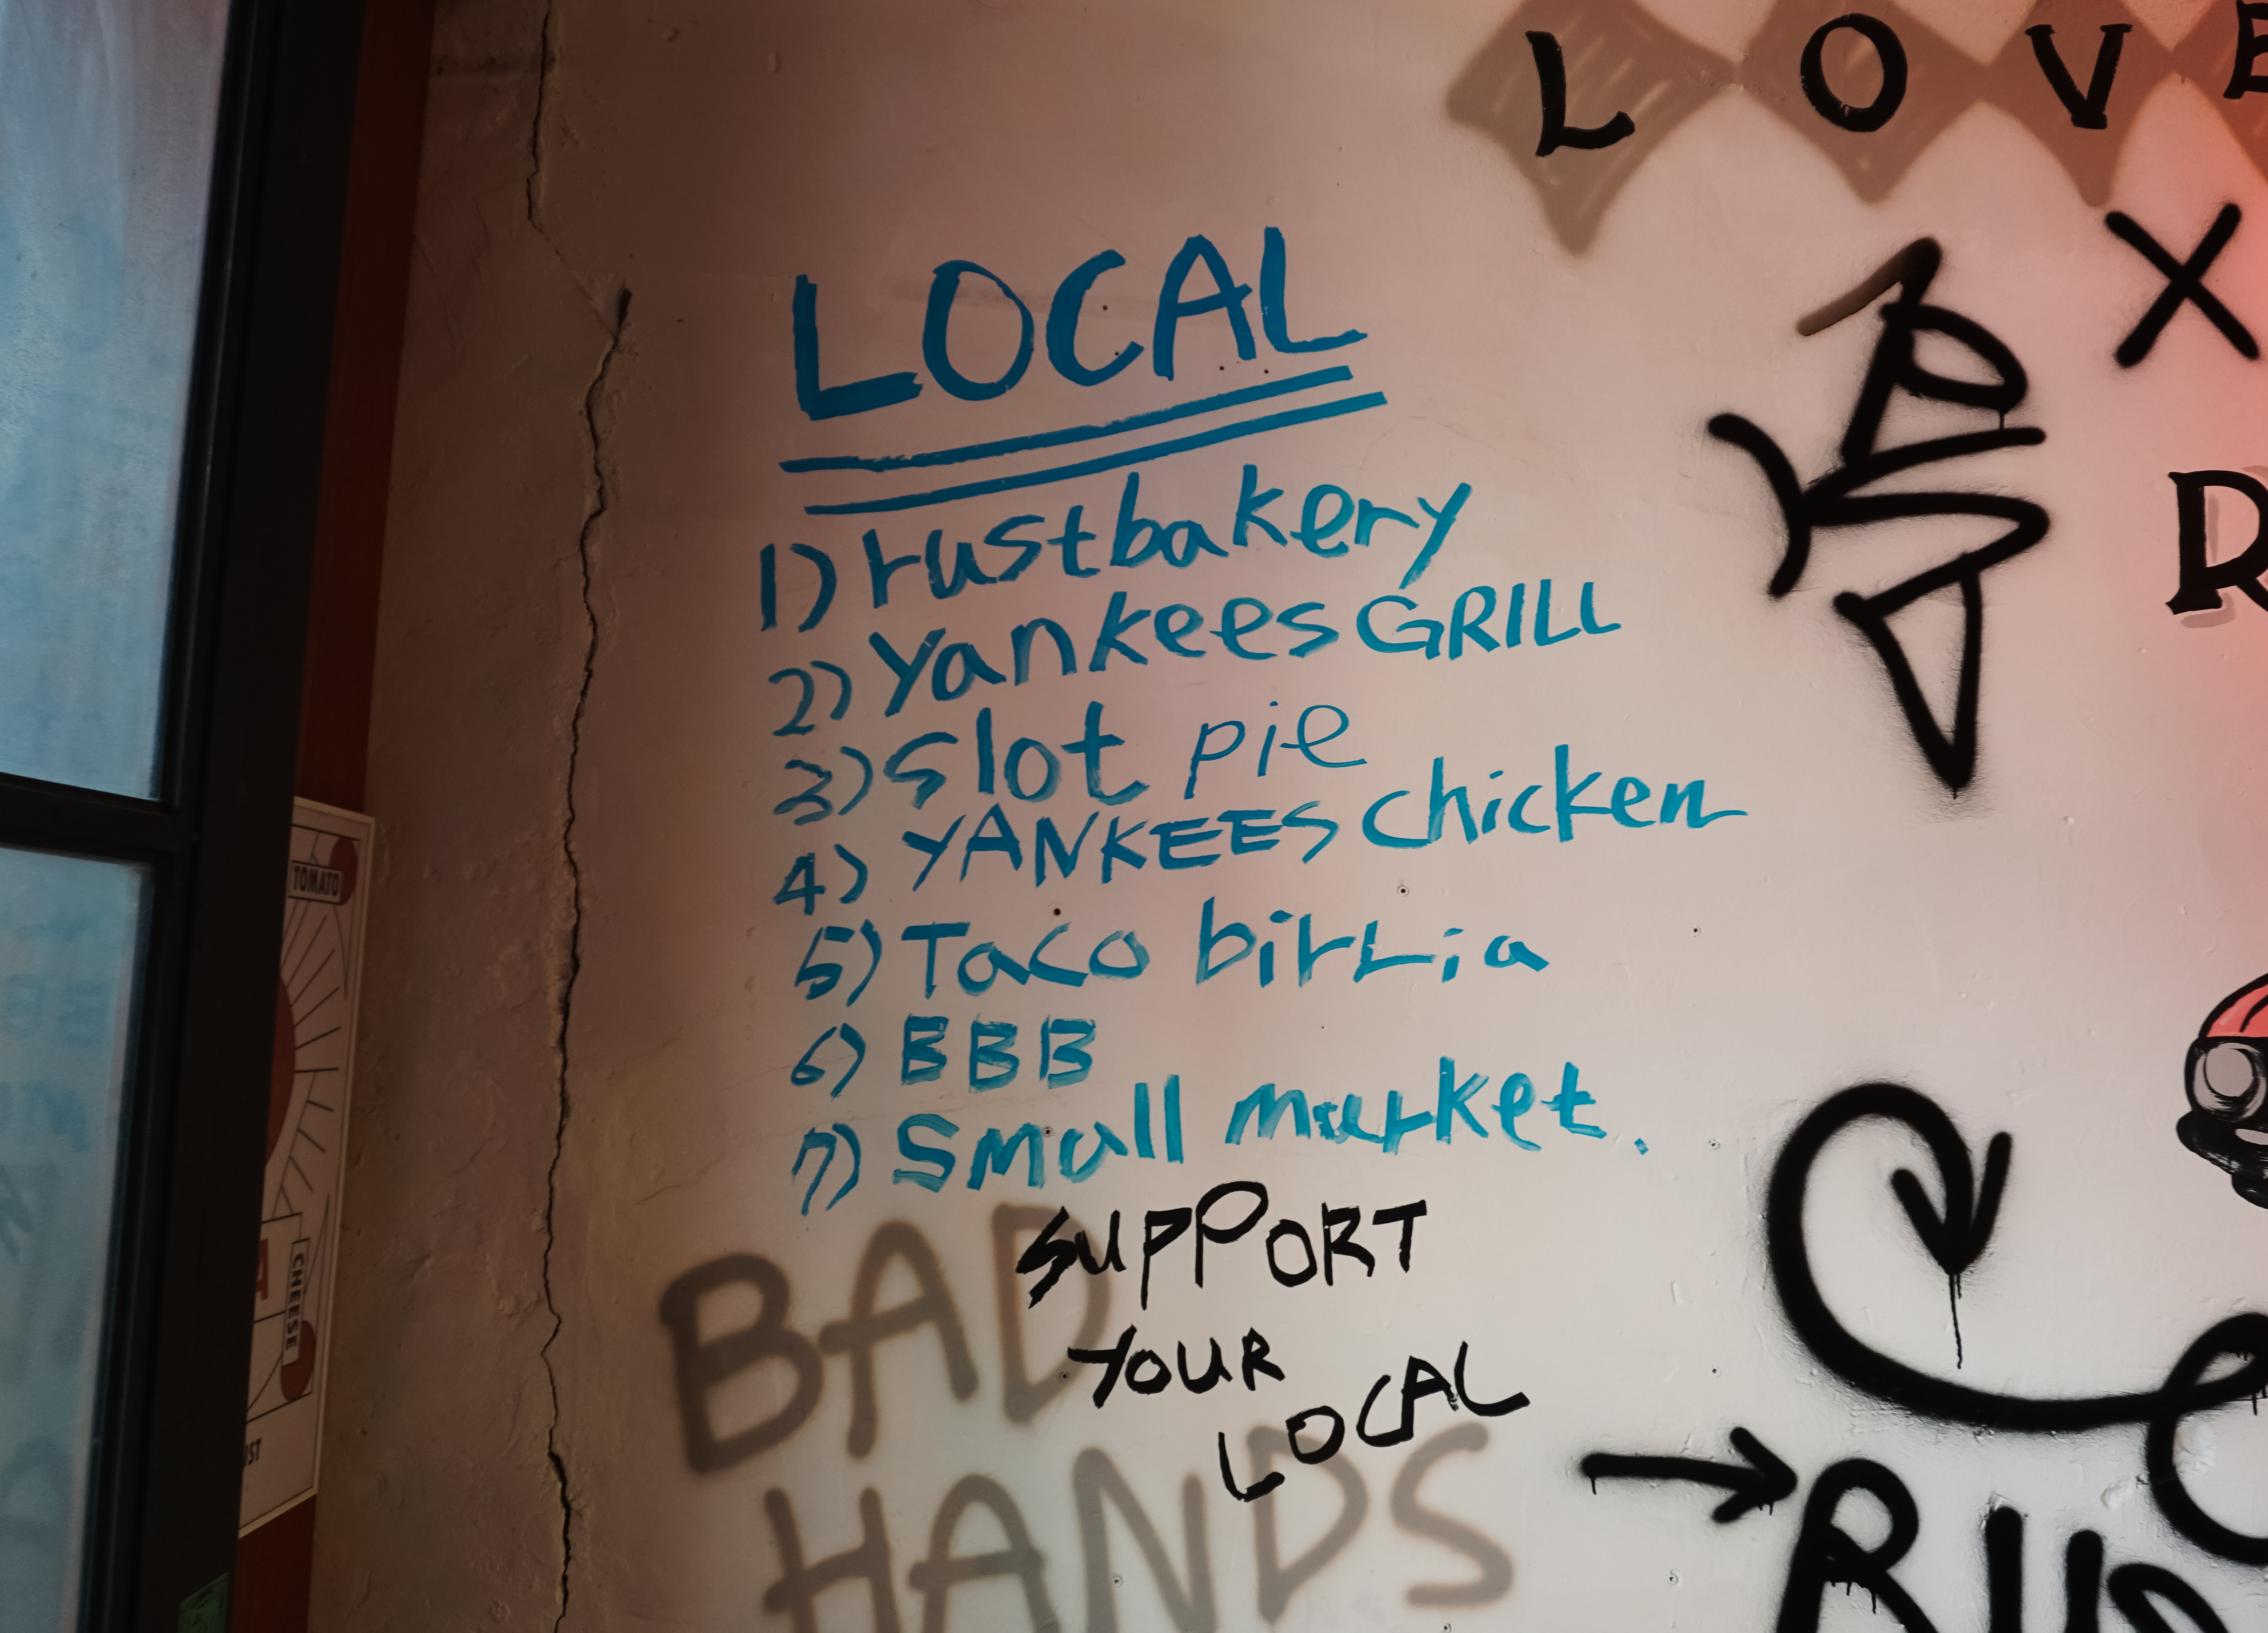 LOVE
X
R
LOCAL
1) rustbakery
2) Yankees GRILL
3) Slot pie
4) YANKEES chicken
5) Taco birria
6) BBB
7) Small market.
SUPPORT
YOUR
LOCAL
BAD
HANDS
TOMATO
CHEESE